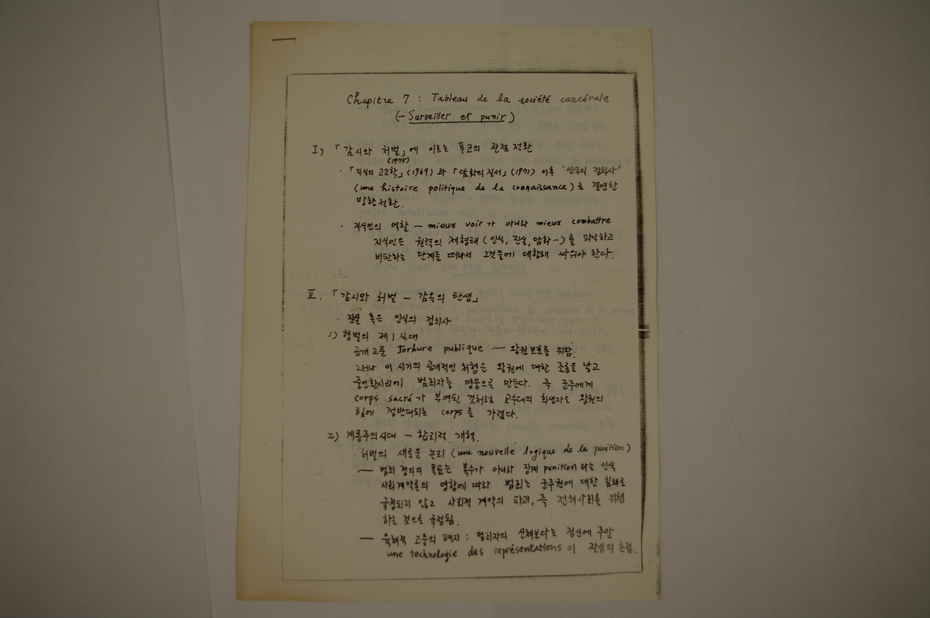 Chapitre 7 : Tableau de la société carcérale
(- Surveiller et punir)
I) 「감시와 처벌」에 이르는 푸코의 관점 전환
(1975)
· 「지식의 고고학」(1969) 과 「담화의 질서」(1971) 이후 '인식의 정치사'
(une histoire politique de la connaissance)로
방향전환.
· 지식인의 역할 — mieux voir가 아니라 mieux combattre
지식인은 권력의 제형태 (인식, 진실, 담화 -)를 파악하고
비판하는 단계를 떠나서 그것들에 대항해 싸워야 한다.
II. 「감시와 처벌 — 감옥의 탄생」
· 혹은 인식의 정치사
1) 형벌의 제1시대
공개고문 torture publique — 왕권보호를 위함.
그러나 이 시기의 공개적인 처형은 왕권에 대한 조롱을 낳고
범죄자를 영웅으로 만든다. 즉 군주에게
corps sacré가 부여된 것처럼 교수대의 희생자도 왕권의
힘에 정반대되는 corps를 가졌다.
2) 계몽주의시대 — 합리적 개혁.
· 처벌의 새로운 논리 (une nouvelle logique de la punition)
— 범죄 정의의 목표는 복수가 아니라 징계 punition 라는 인식
사회계약론의 영향에 따라 범죄는 군주권에 대한 침해로
규정되지 않고 사회적 계약의 파괴, 즉 전체사회를 위협
하는 것으로 규정됨.
— 육체적 고문의 폐지 : 범죄자의 신체보다는 정신에 주안
une technologie des représentations이 관심의 초점.